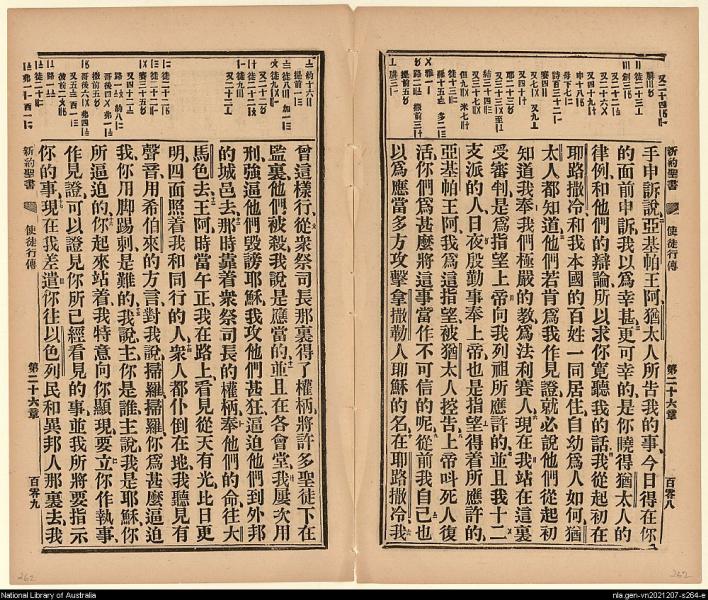 新約聖書 使徒行傳 第二十六章 百零八
手申訴說、亞基帕王阿、猶太人所告我的事、今日得在你
的面前申訴、我以爲幸甚、更可幸的、是你曉得猶太人的
律例、和他們的辯論、所以求你寬聽我的話、我從起初在
耶路撒冷、和我本國的百姓一同居住、自幼爲人如何、猶
太人都知道、他們若肯爲我作見證、就必說他們從起初
知道我奉我們極嚴的教、爲法利賽人、現在我站在這裏
受審判、是爲指望上帝向我列祖所應許的、並且我十二
支派的人、日夜殷勤事奉上帝、也是指望得着所應許的、
亞基帕王阿、我爲這指望、被猶太人控告、上帝呌死人復
活、你們爲甚麽將這事當作不可信的呢、從前我自己也
以爲應當多方攻擊拿撒勒人耶穌的名、在耶路撒冷、我
曾這樣行、從衆祭司長那裏得了權柄、將許多聖徒下在
監裏、他們被殺、我說是應當的、並且在各會堂、我屢次用
刑、強逼他們毀謗耶穌、我攻他們甚狂、逼迫他們到外邦
的城邑去、那時靠着衆祭司長的權柄、奉他們的命、往大
馬色去、王阿、時當午正、我在路上看見從天有光、比日更
明、四面照着我和同行的人、衆人都仆倒在地、我聽見有
聲音、用希伯來的方言對我說、掃羅掃羅、你爲甚麽逼迫
我、你用脚踢刺是難的、我說主你是誰、主說我是耶穌、你
所逼迫的、你起來站着、我特意向你顯現、要立你作執事、
作見證、可以證見你所已經看見的事、並我所將要指示
你的事、現在我差遣你往以色列民和異邦人那裏去、我
新約聖書 使徒行傳 第二十六章 百零九
262
262
National Library of Australia
nla.gen-vn2021207-s264-e